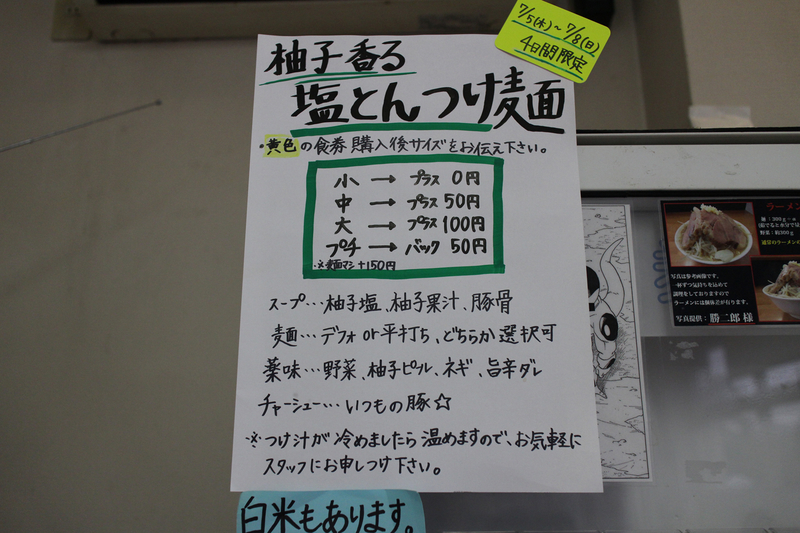 7/5(木)~7/8(日)
4日間限定
柚子香る
塩とんつけ麺
・黄色の食券購入後サイズをお伝え下さい。
小→プラス 0円
中→プラス 50円
大→プラス 100円
プチ→バック 50円
※麺マシ+150円
スープ…柚子塩、柚子果汁、豚骨
麺…デフォor平打ち、どちらか選択可
薬味…野菜、柚子ピール、ネギ、旨辛ダレ
チャーシュー…いつもの豚☆
※つけ汁が冷めましたら温めますので、お気軽に
スタッフにお申しつけ下さい。
白米もあります。
ラーメン
写真は参考画像です。
写真提供:勝二郎 様